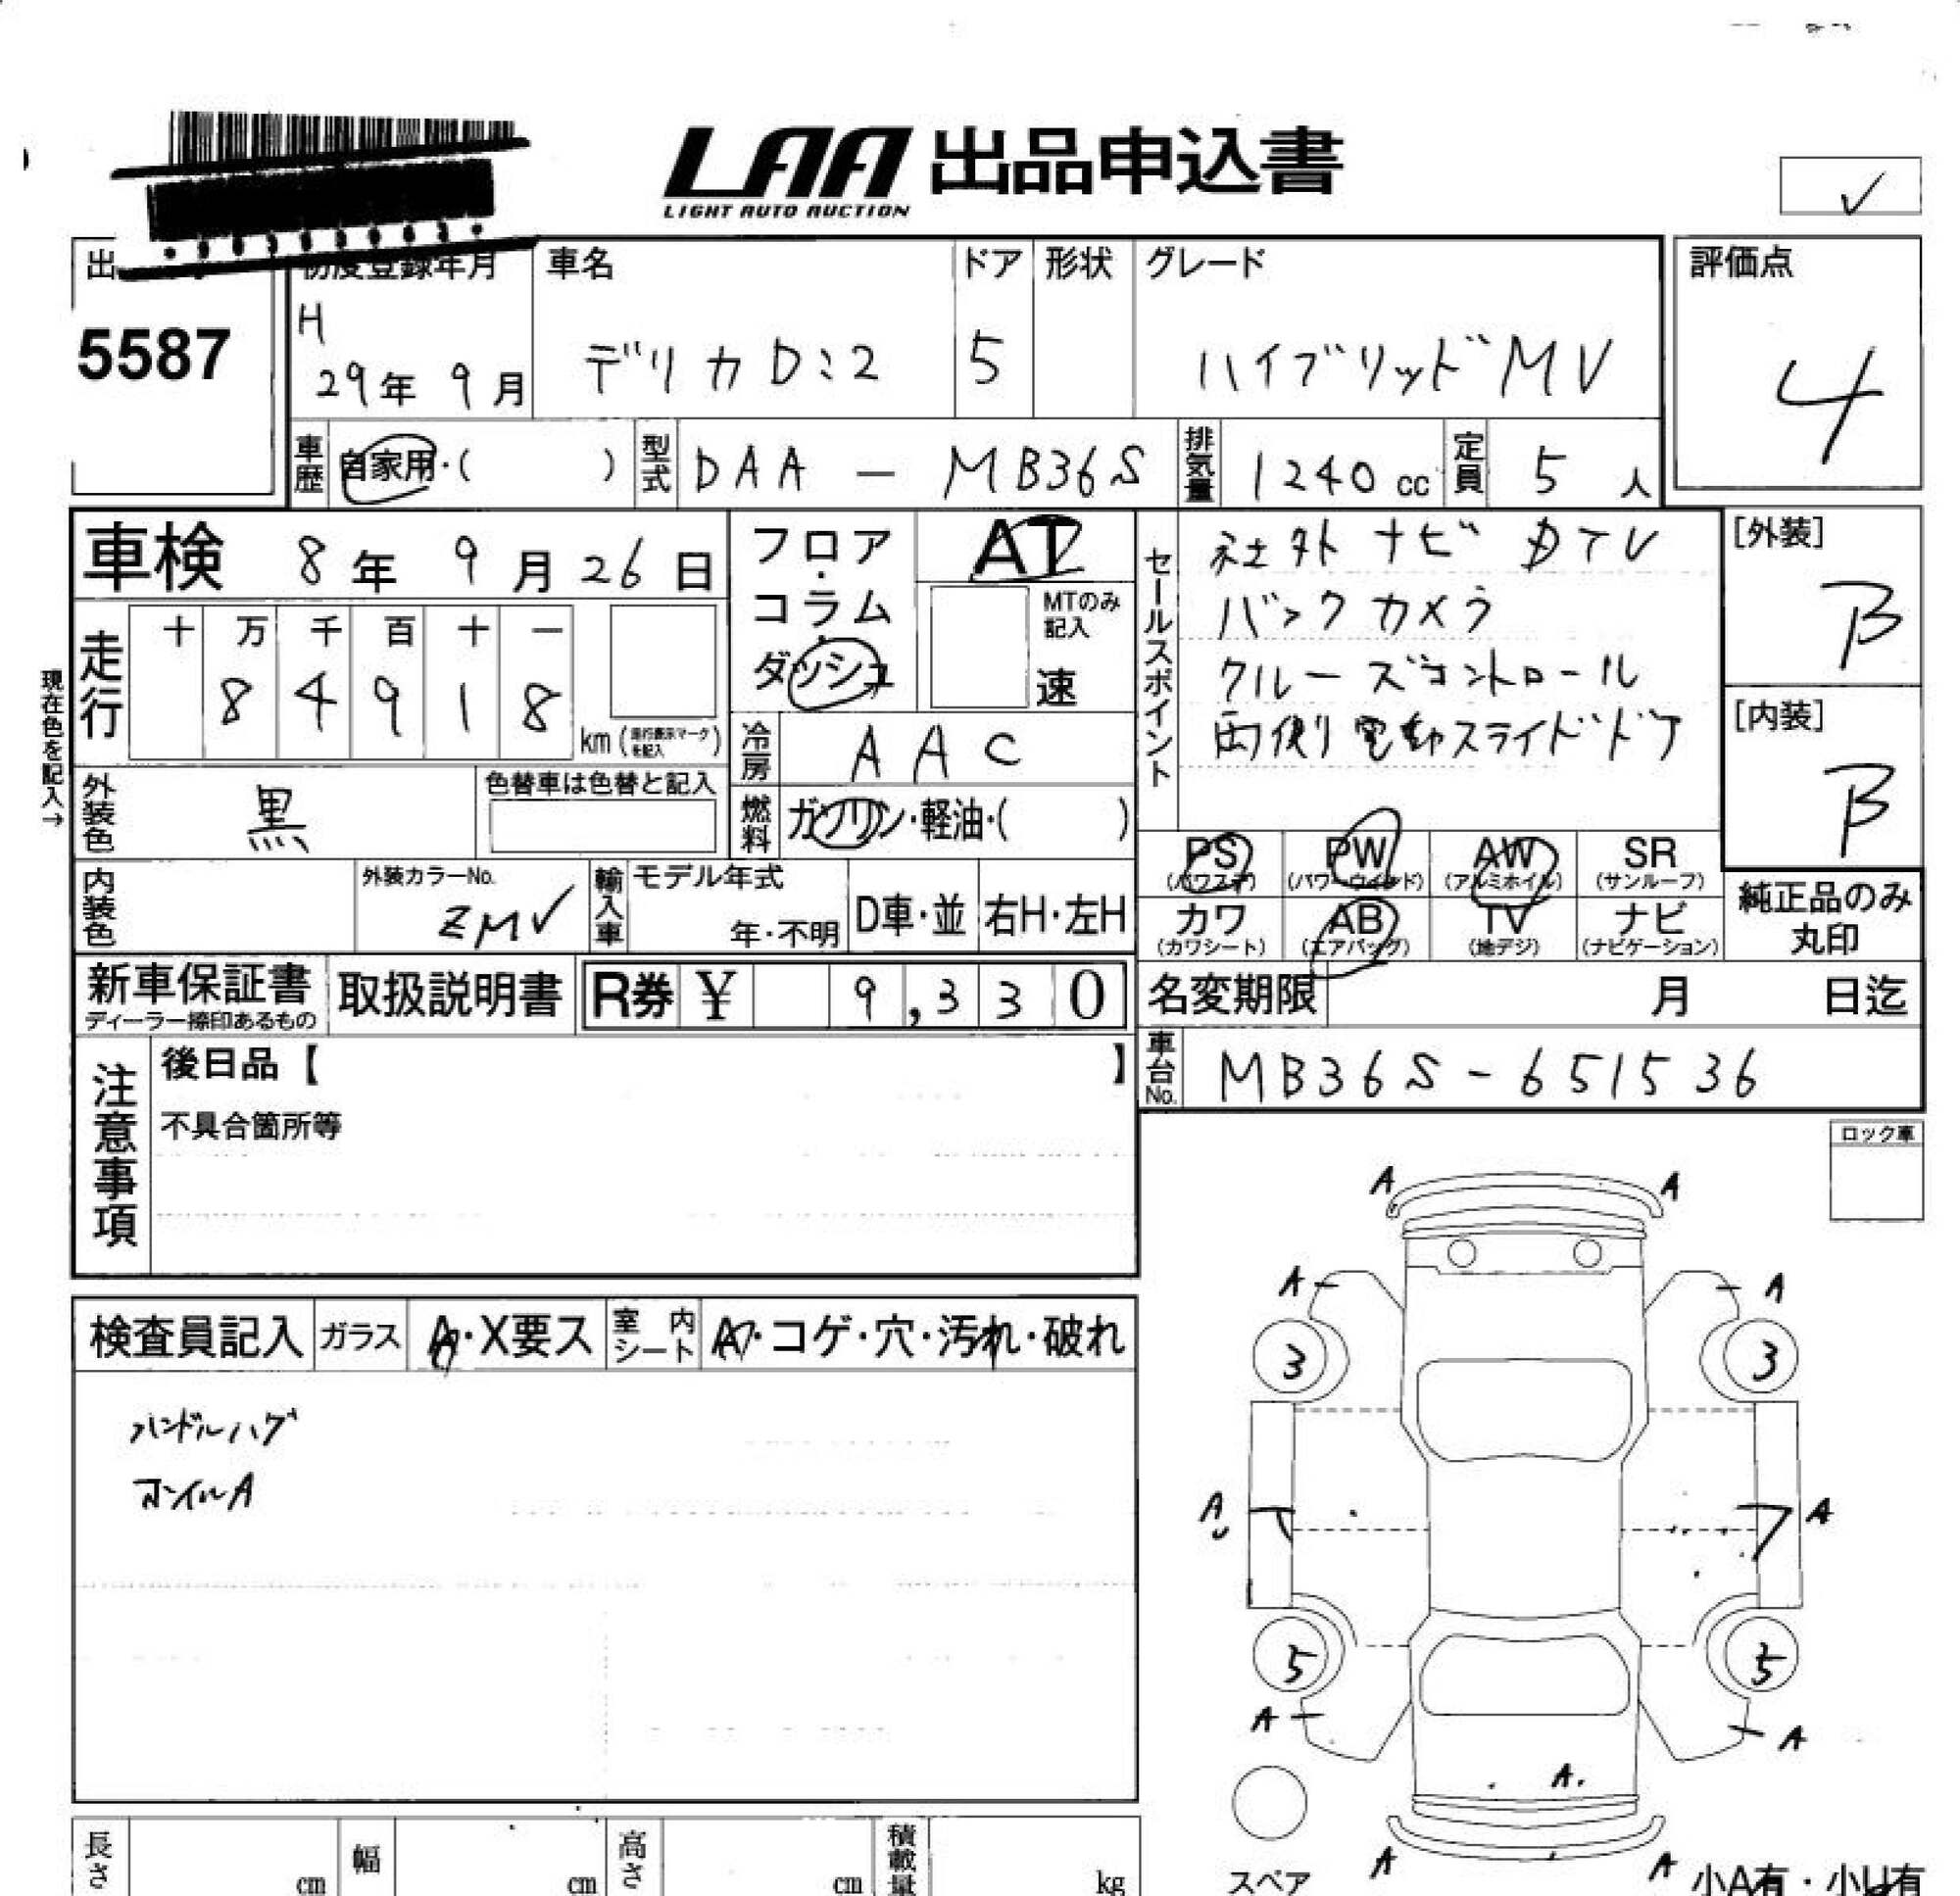 LAA 出品申込書
LIGHT AUTO AUCTION
✓
出
5587
初度登録年月
H
29年 9月
車名
デリカD:2
ドア
5
形状
グレード
ハイブリッドMV
評価点
4
車歴 自家用・( )
型式 DAA - MB36S
排気量 1240 cc
定員 5 人
車検 8年 9月 26日
走行
十 万 千 百 十 一
8 4 9 1 8
km (走行表示マークを記入)
現在色を記入→
外装色 黒
色替車は色替と記入
内装色
外装カラーNo.
ZMV
フロア・コラム・ダッシュ
AT
MTのみ記入
速
冷房 AAC
燃料 ガソリン・軽油・( )
輸入車
モデル年式
年・不明
D車・並
右H・左H
セールスポイント
社外ナビ DTV
バックカメラ
クルーズコントロール
両側電動スライドドア
[外装]
B
[内装]
B
PS (パワステ) PW (パワーウィンド) AW (アルミホイル) SR (サンルーフ)
カワ (カワシート) AB (エアバッグ) TV (地デジ) ナビ (ナビゲーション)
純正品のみ
丸印
新車保証書
ディーラー捺印あるもの
取扱説明書
R券 ¥ 9,330
名変期限 月 日迄
車台No. MB36S-651536
注意事項
後日品【 】
不具合箇所等
ロック車
検査員記入
ガラス A・X要ス
室内シート A・コゲ・穴・汚れ・破れ
ハンドルハゲ
ホイルA
A A
A A
3 3
A A
5 5
A A
A
A A
スペア
小A有・小U有
長さ cm
幅 cm
高さ cm
積載量 kg